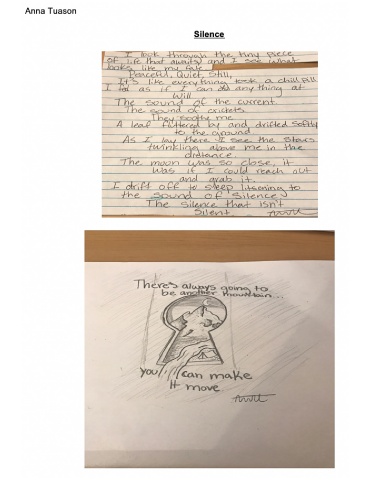 Anna Tuason
Silence
I look through the tiny piece
of life that awaits and I see what
looks like my
Peaceful, Quiet, Still,
It's like everything took a chill pill
I feel as if I can do anything at
Will
The sound of the current
The sound of crickets
They soothe me
A leaf fluttered by and drifted softly
to the ground
As I lay there I see the stars
twinkling above me in the
distance
The moon was so close, it
was if I could reach out
and grab it.
I drift off to sleep listening to
the sound of silence
The silence that isn't
Silent.
There's always going to
be another mountain...
you can make
it move